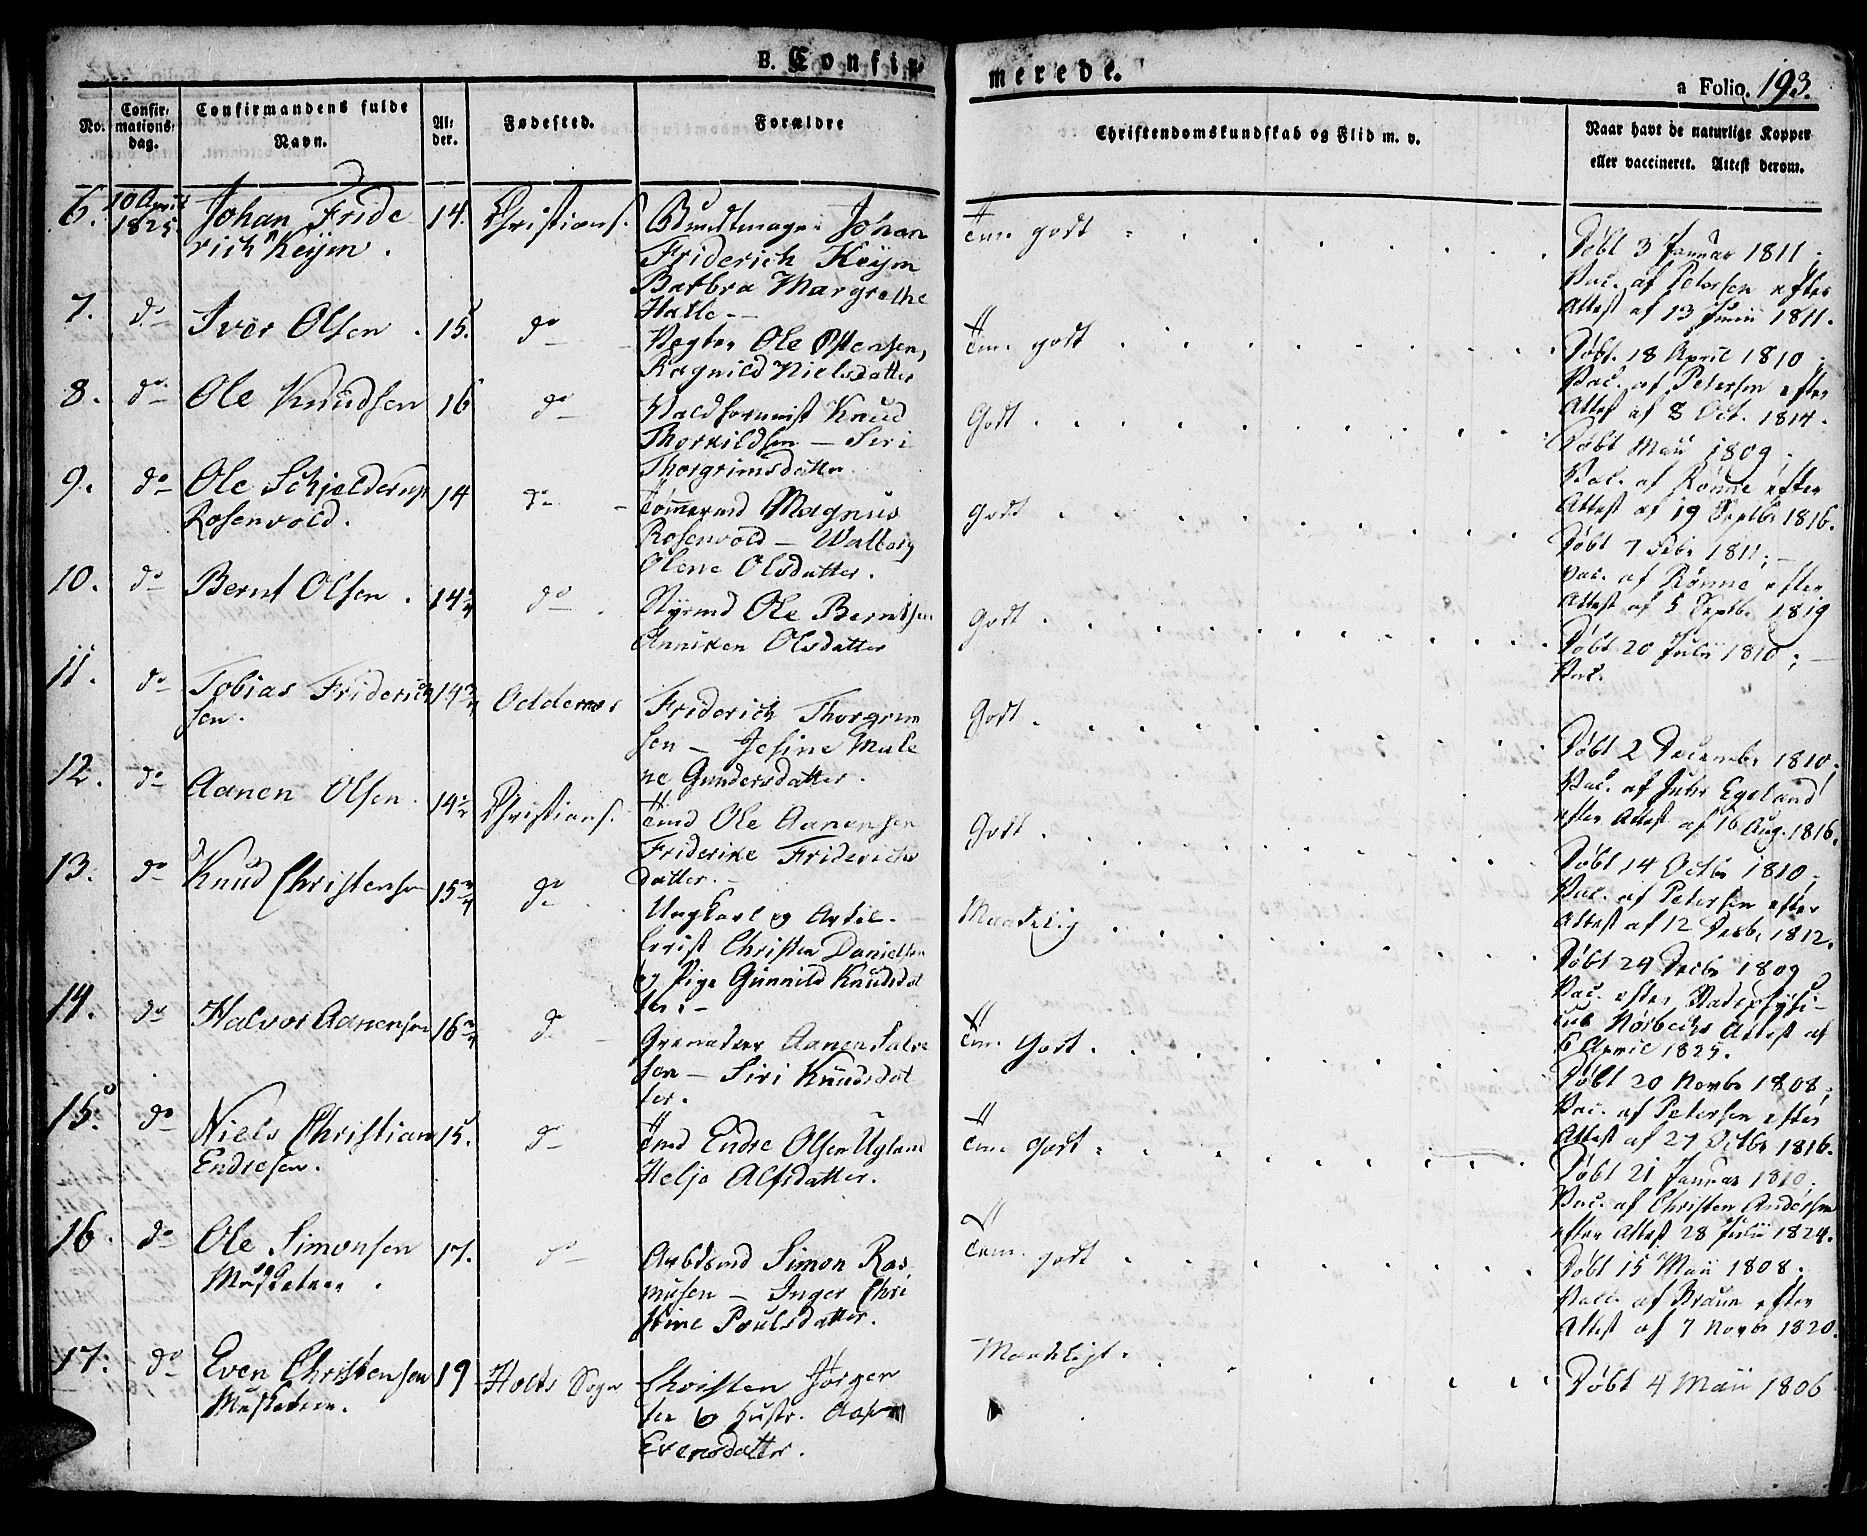 B. Confir
merede.
a Folio 193.
No.
Confir-
mations-
dag.
Confirmandens fulde
Navn.
Al-
der.
Fødested.
Forældre
Christendomskundskab og Flid m. v.
Naar havt de naturlige Kopper
eller vaccineret. Attest derom.
6. 10 April 1825. Johan Fride 14. Christians.
rich Keijm.
Bundtmager Johan
Friderich Keijm
Barbra Margrethe
Halle.
Tem. godt
Døbt 3 Januar 1811;
Vac. af Petersen efter
Attest af 13 Junii 1811.
7. do Iver Olsen. 15. do
Vægter Ole Ostensen,
Ragnild Nielsdatter
Tem. godt
Døbt. 18 April 1810;
Vac. af Petersen efter
Attest af 8 Oct. 1814.
8. do Ole Knudsen 16 do
Knud
Thorkildsen – Siri
Thorgrimsdatter
Godt
Døbt Maii 1809;
Vac. af Rønne efter
Attest af 19 Septbr 1816.
9. do Ole Schjelderup 14 do
Rosenvold.
Tømermd Magnus
Rosenvold – Walborg
Olene Olsdatter.
godt
Døbt 7 Febr 1811;
Vac. af Rønne efter
Attest af 5 Septbr 1819
10. do Bernt Olsen. 14 3/4 do
Styrmd Ole Berntsen
Anniken Olsdatter
godt
Døbt 20 Julii 1810;
Vac.
11. do Tobias Friderich 14 3/4 Oddernes
sen.
Friderich Thorgrim
sen – Jesine Male
ne Gundersdatter.
Godt
Døbt 2 Decembr 1810;
Vac. af Egeland
efter Attest af 16 Aug. 1816.
12. do Aanen Olsen. 14 1/2 Christians.
Tmd Ole Aanensen
Friderike Friderichs
datter.
Godt
Døbt 14 Octbr 1810;
Vac. af Petersen efter
Attest af 12 Decbr 1812.
13. do Knud Christensen 15 3/4 do
Ungkarl og Artil-
lerist Christen Danielsen
og Pige Gunnild Knudsdat
ter.
Maadelig
Døbt 24 Decbr 1809
Vac. efter Stadsphysi-
cus Nørbechs Attest af
6 April 1825.
14. do Halvor Aanensen 16 3/4 do
Grenadeer Aanen Salve
sen – Siri Knudsdat
ter.
Tem. Godt.
Døbt 20 Novbr 1808;
Vac. af Petersen efter
Attest af 27 Octbr 1816.
15. do Niels Christian 15. do
Endresen.
Tmd Endre Olsen Ugland
Helje Alfsdatter.
Tem. Godt
Døbt 21 Januar 1810.
Vac. af Christen Andersen
efter Attest 28 Julii 1824.
16. do Ole Simonsen 17. do
Musketeer.
Arbdsmd Simon Ras
musen – Inger Chri
stine Poulsdatter.
Tem. godt
Døbt 15 Maii 1808.
Vacc. af Braun efter
Attest af 7 Novbr 1820.
17. do Even Christensen 19 Holts Sogn
Musketeer.
Christen Jørgen
sen Hustr.
Evensdatter.
Maadeligt.
Døbt 4 Maii 1806